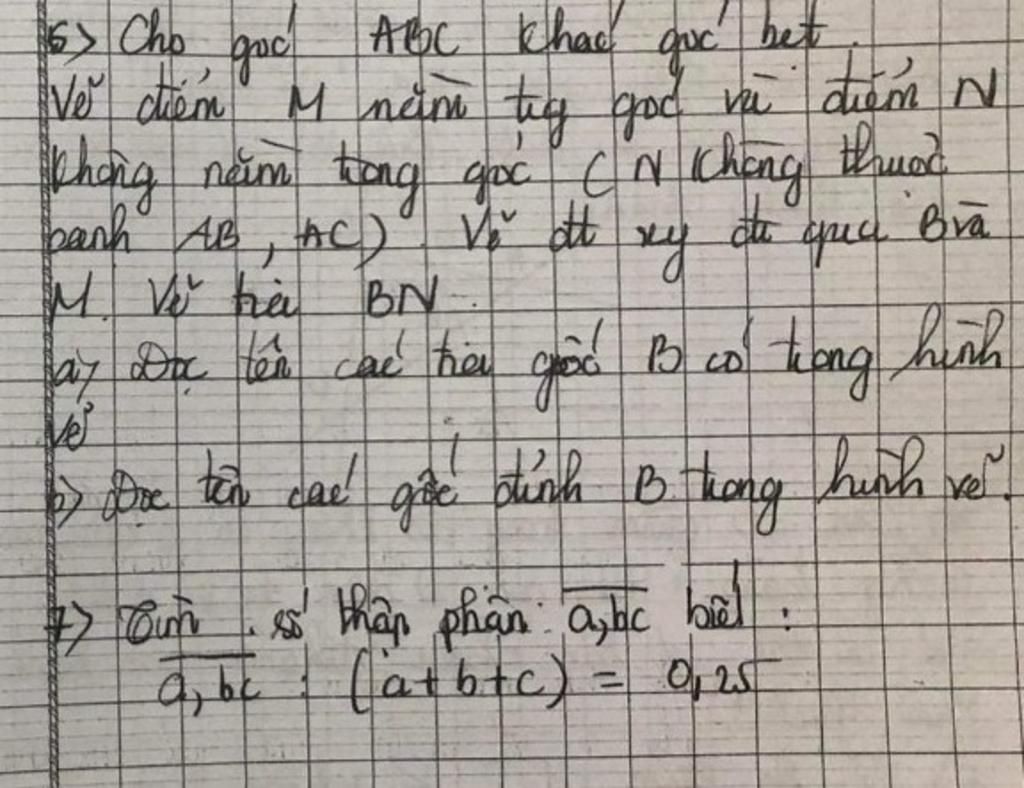 6> Cho góc ABC khác góc bẹt.
Vẽ điểm M nằm tg góc và điểm N
không nằm trong góc (N không thuộc
cạnh AB, AC). Vẽ đt xy đi qua B và
M. Vẽ tia BN.
a> Đọc tên các tia gốc B có trong hình
vẽ
b> Đọc tên các góc đỉnh B trong hình vẽ.
7> Tìm số thập phân a,bc biết:
a,bc : (a+b+c) = 0,25